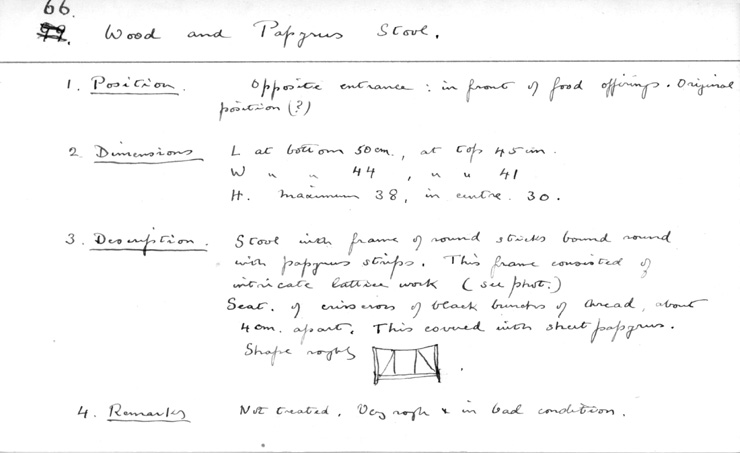 66.
99. Wood and Papyrus Stool.
1. Position. Opposite entrance : in front of food offerings. Original
position (?)
2. Dimensions L at bottom 50 cm., at top 45 cm.
W " " 44 , " " 41
H. maximum 38, in centre 30.
3. Description. Stool with frame of round sticks bound round
with papyrus strips. This frame consisted of
intricate lattice work (see phot.)
Seat. of crisscross of black bunches of thread, about
4 cm. apart. This covered with sheet papyrus.
Shape roughly
4. Remarks Not treated. Very rough & in bad condition.